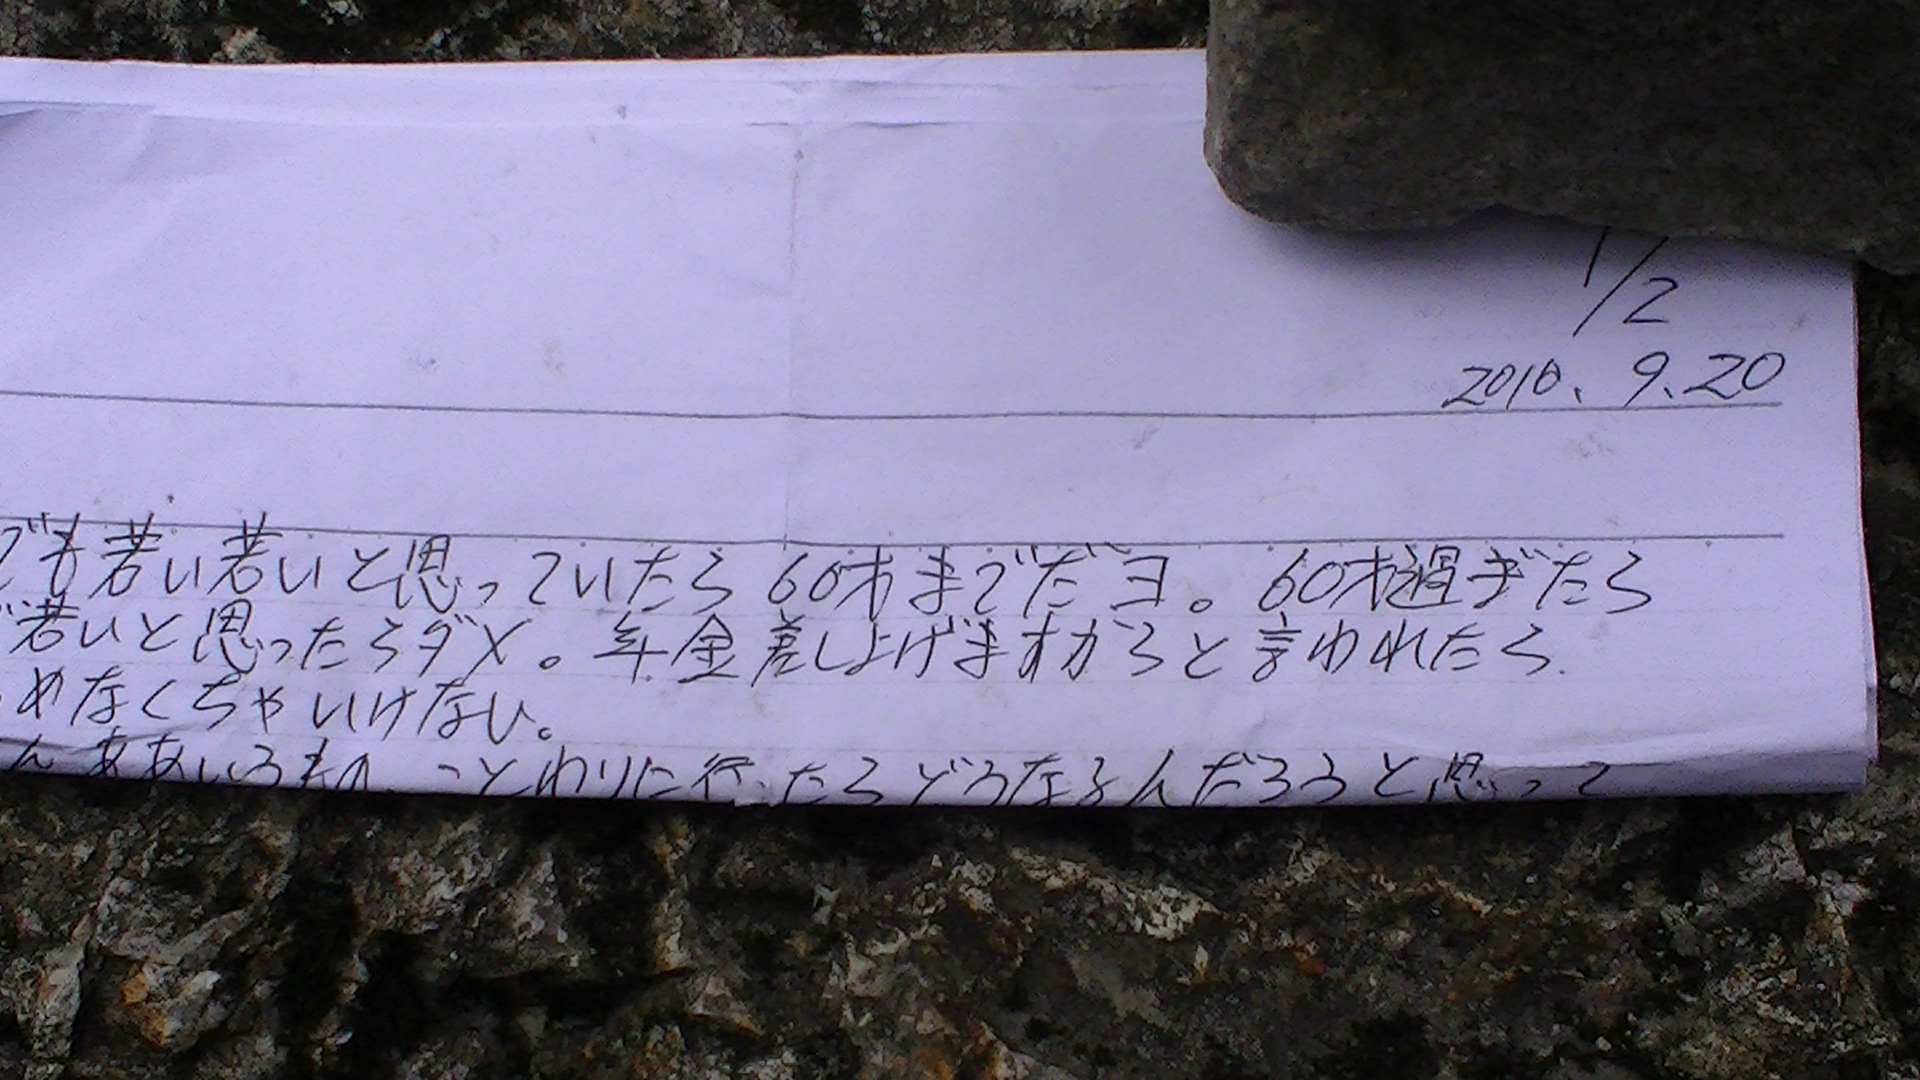 1/2
2010. 9. 20
でも若い若いと思っていたら60才までだヨ。60才過ぎたら
若いと思ったらダメ。年金差し上げますからと言われたら
めなくちゃいけない。
ことわりに行ったらどうなるんだろうと思って